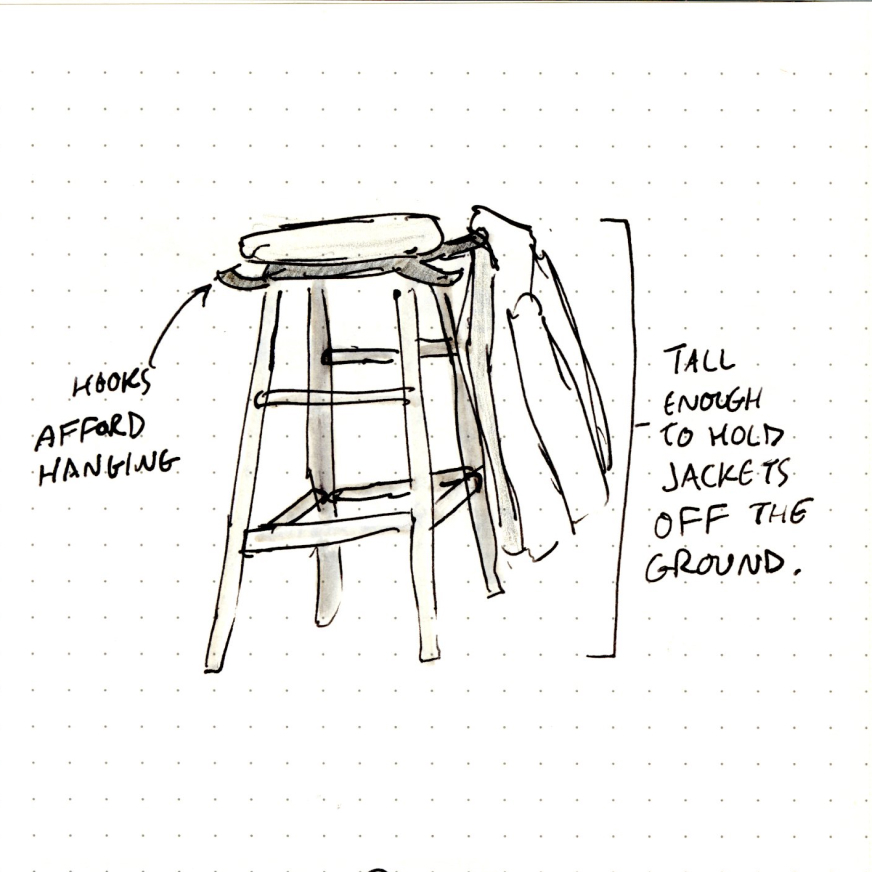 HOOKS
AFFORD
HANGING
TALL
ENOUGH
TO HOLD
JACKETS
OFF THE
GROUND.